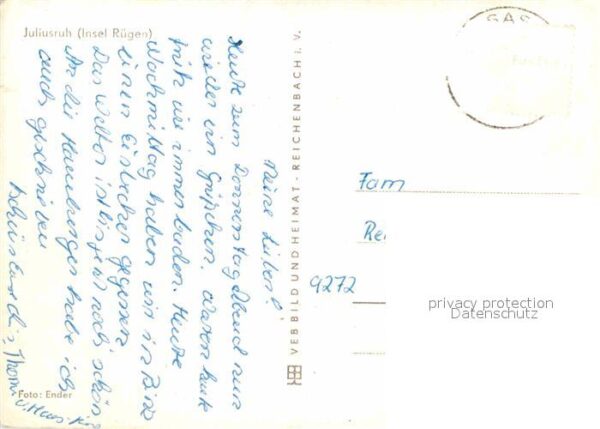 Juliusruh (Insel Rügen)
Meine Lieben!
Heute zum Donnerstag Abend nun
wieder ein Grüßchen. Waren heute
früh wie immer baden. Heute
Nachmittag haben wir in Binz
einen Eisbecher gegessen.
Das Wetter ist bis jetzt noch schön
An die Hamburger habe ich
auch geschrieben
Thomas
Foto: Ender
VEB BILD UND HEIMAT - REICHENBACH i. V.
GAG
Fam
Re
9272
privacy protection
Datenschutz